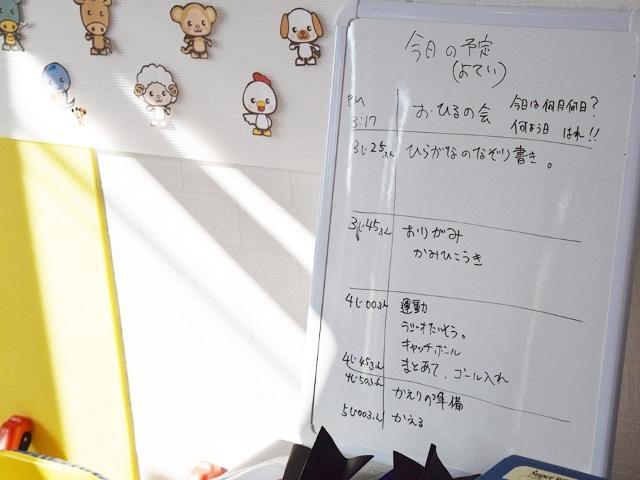 今日の予定
(よてい)
PM
3:17
おひるの会
今日は何月何日?
何よう日 はれ!!
3じ25ふん ひらがなのなぞり書き。
3じ45ふん おりがみ
かみひこうき
4じ00ふん 運動
ラジオたいそう。
キャッチボール
4じ45ふん まとあて、ゴール入れ
4じ50ふん かえりの準備
5じ00ふん かえる
Super